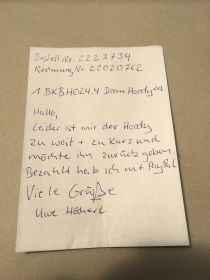 Bestell Nr. 2223734
Rechnung Nr 22020762
1 BKBH024.4 Down Hoody XXL
Hallo,
Leider ist mir der Hoody
zu weit + zu kurz und
möchte ihn zurück geben.
Bezahlt hab ich mit PayPal
Viele Grüße
Uwe